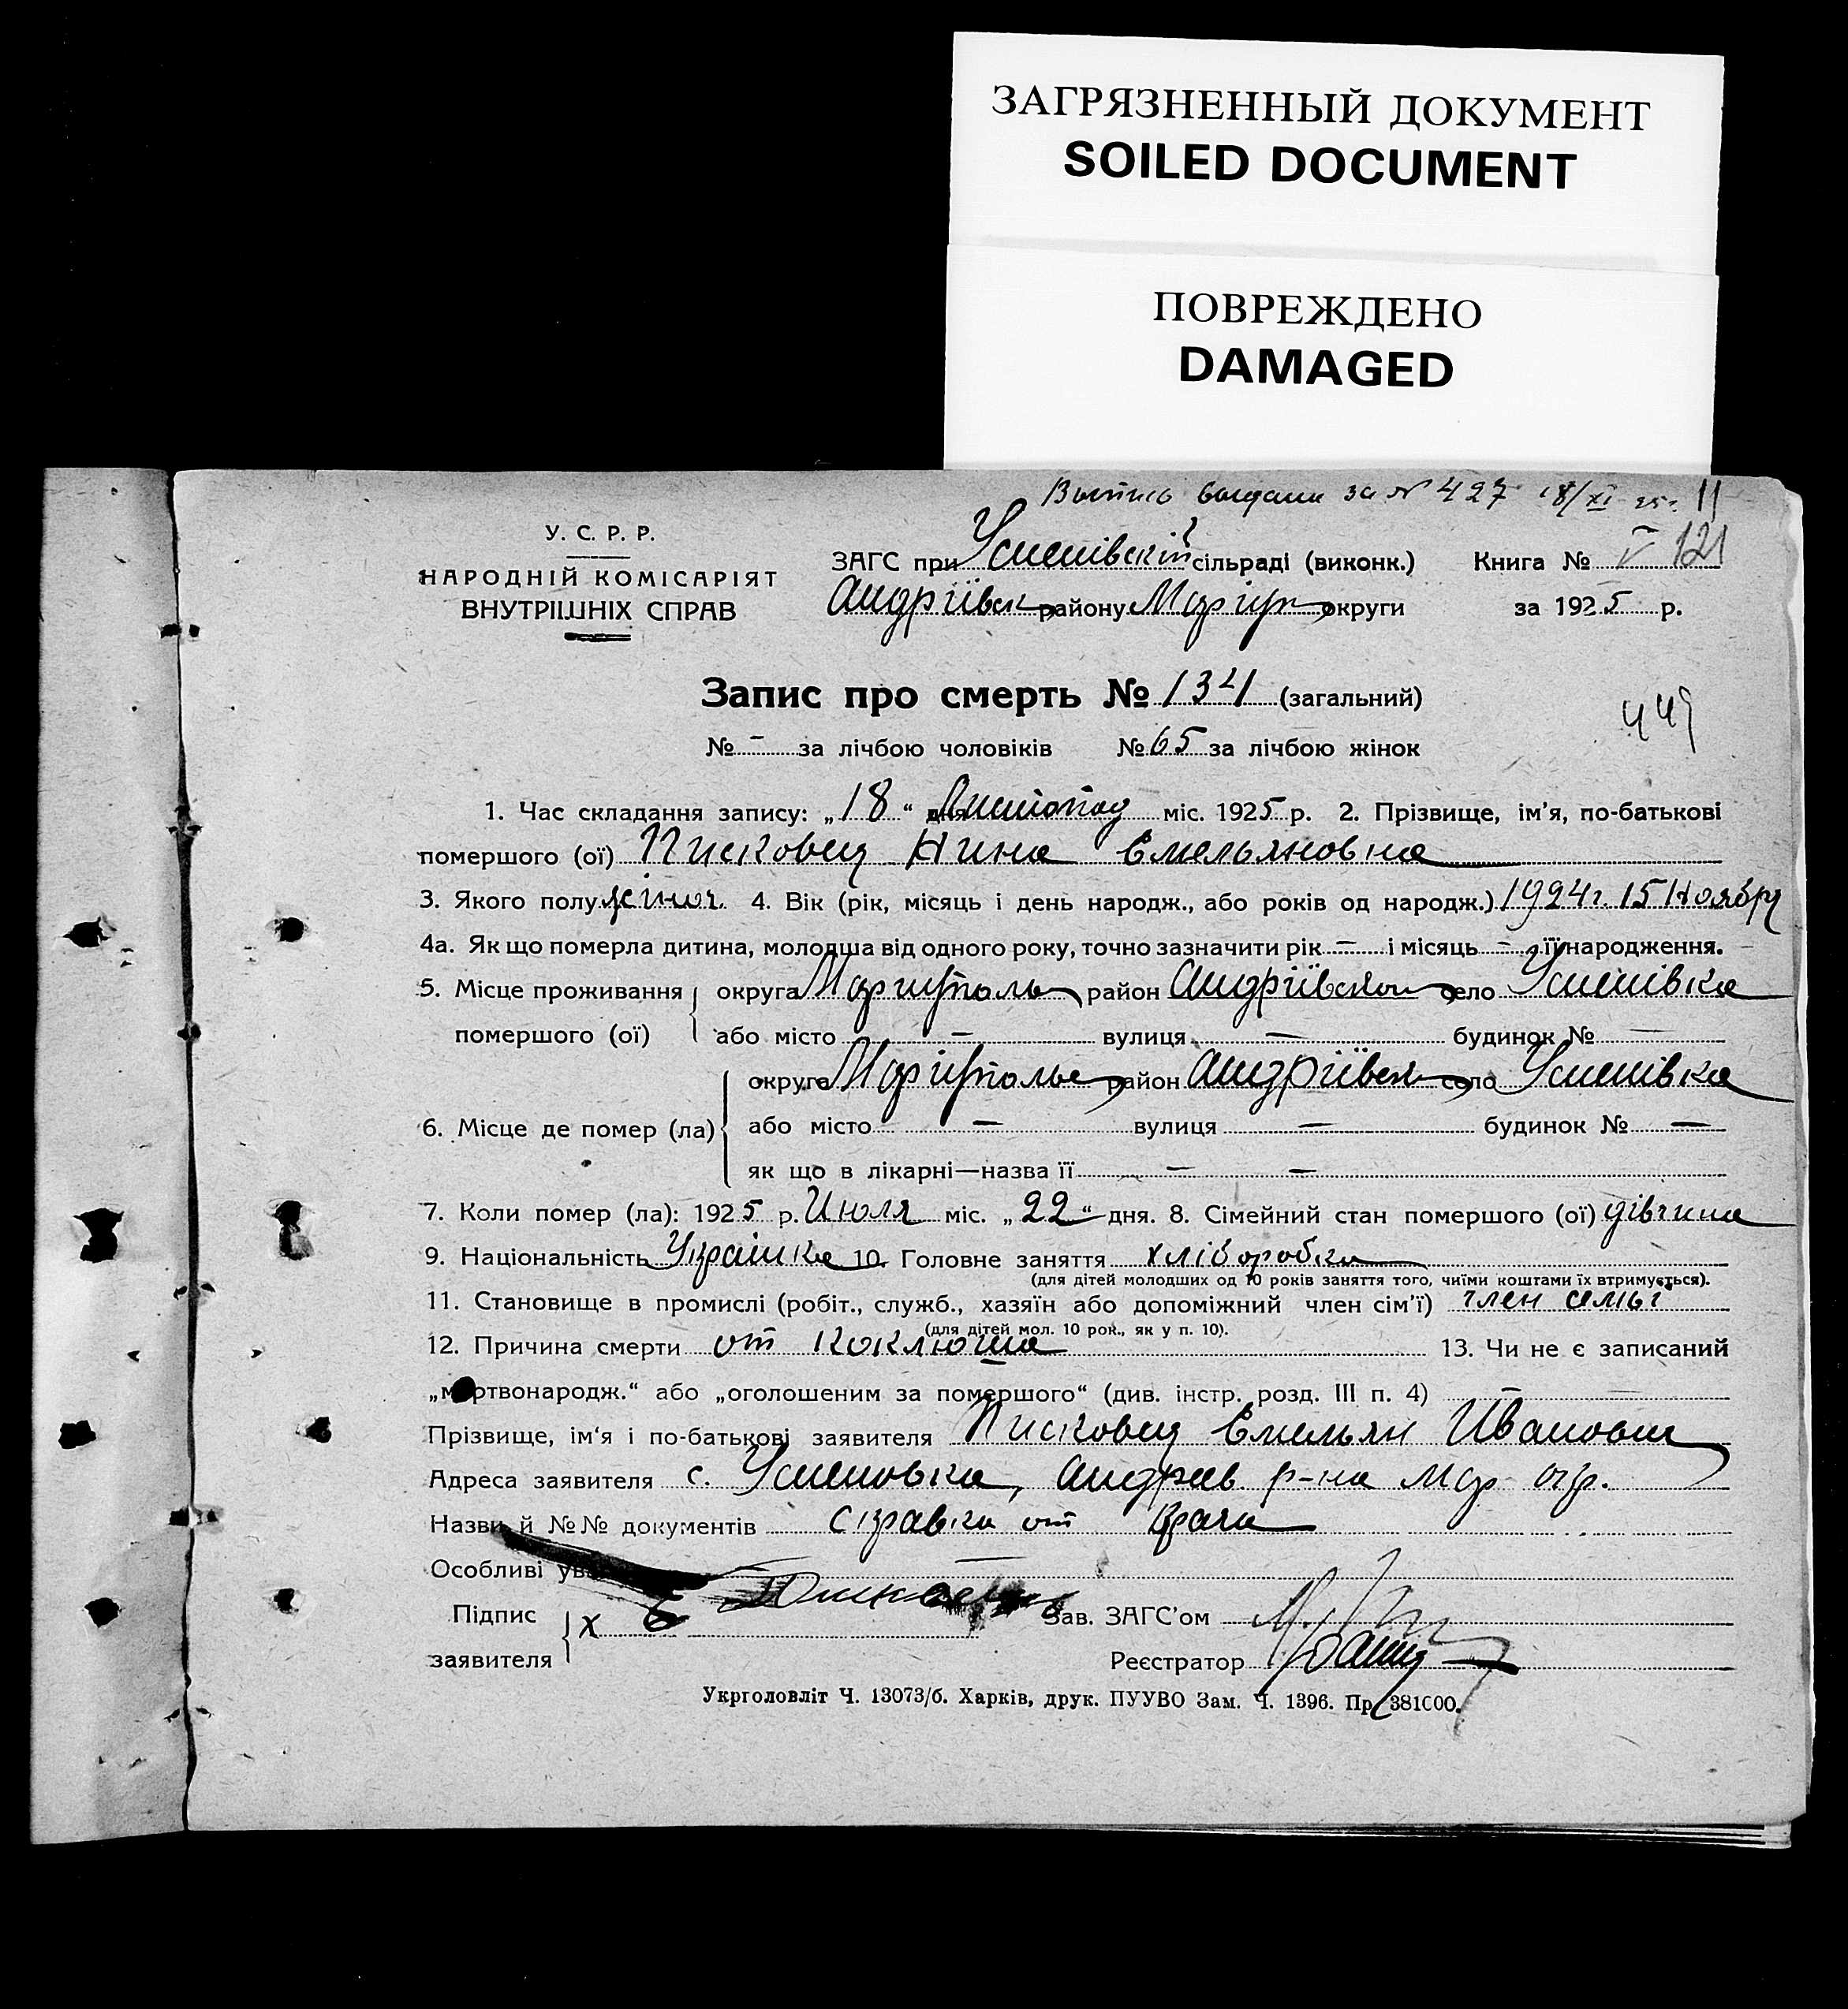 ЗАГРЯЗНЕННЫЙ ДОКУМЕНТ
SOILED DOCUMENT
ПОВРЕЖДЕНО
DAMAGED
за № 427 18/XI 25г. 11
У. С. Р. Р.
ЗАГС при Успенівскій сільраді (виконк.) Книга № V 121
НАРОДНІЙ КОМІСАРІЯТ
ВНУТРІШНІХ СПРАВ
Андріївск району Маріуп округи за 1925 р.
Запис про смерть № 134 (загальний)
449
№ - за лічбою чоловіків № 65 за лічбою жінок
1. Час складання запису: „18“ дня Листопад міс. 1925 р. 2. Прізвище, ім'я, по-батькові
помершого (ої) Писковец Нина Емельяновна
3. Якого полу жіноч. 4. Вік (рік, місяць і день народж., або років од народж.) 1924г. 15 Ноября
4а. Як що померла дитина, молодша від одного року, точно зазначити рік — і місяць - її народження.
5. Місце проживання округа Мариуполь район Андріївском село Успенівка
помершого (ої) або місто — вулиця — будинок № —
округа Маріуполь район Андріївск село Успенівка
6. Місце де помер (ла) або місто — вулиця — будинок № —
як що в лікарні—назва її — —
7. Коли помер (ла): 1925 р. Июля міс. „22“ дня. 8. Сімейний стан помершого (ої) дівчина
9. Національність Українка 10. Головне заняття хліборобка
(для дітей молодших од 10 років заняття того, чиїми коштами їх втримується).
11. Становище в промислі (робіт., служб., хазяїн або допоміжний член сім'ї) член семьі
(для дітей мол. 10 рок., як у п. 10).
12. Причина смерти от коклюша 13. Чи не є записаний
„мертвонародж.“ або „оголошеним за помершого“ (див. інстр. розд. III п. 4) —
Прізвище, ім'я і по-батькові заявителя Писковец Емельян Иванович
Адреса заявителя с. Успеновка, Андреев. р-на Мар. окр.
Назви й №№ документів справка от врача
Особливі ув —
Підпис заявителя х
Зав. ЗАГС'ом
Реєстратор
Укрголовліт Ч. 13073/б. Харків, друк. ПУУВО Зам. Ч. 1396. Пр. 381000.